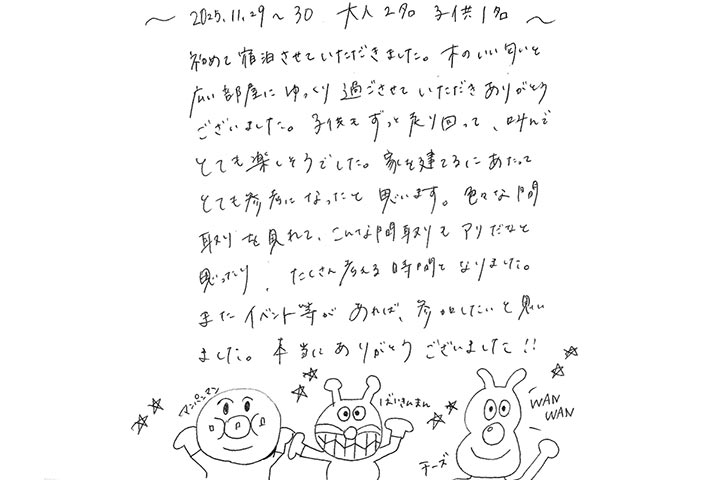 ～ 2025.11.29～30 大人2名 子供1名 ～
初めて宿泊させていただきました。木のいい匂いと
広い部屋にゆっくり過ごさせていただきありがとう
ございました。子供もずっと走り回って、叫んで
とても楽しそうでした。家を建てるにあたって
とても参考になったと思います。色々な間
取りを見れて、こんな間取りもアリだなと
思ったり、たくさん考える時間となりました。
またイベント等があれば、参加したいと思い
ました。本当にありがとうございました!!
マンパンマン
ばいきんまん
WAN
WAN
チーズ